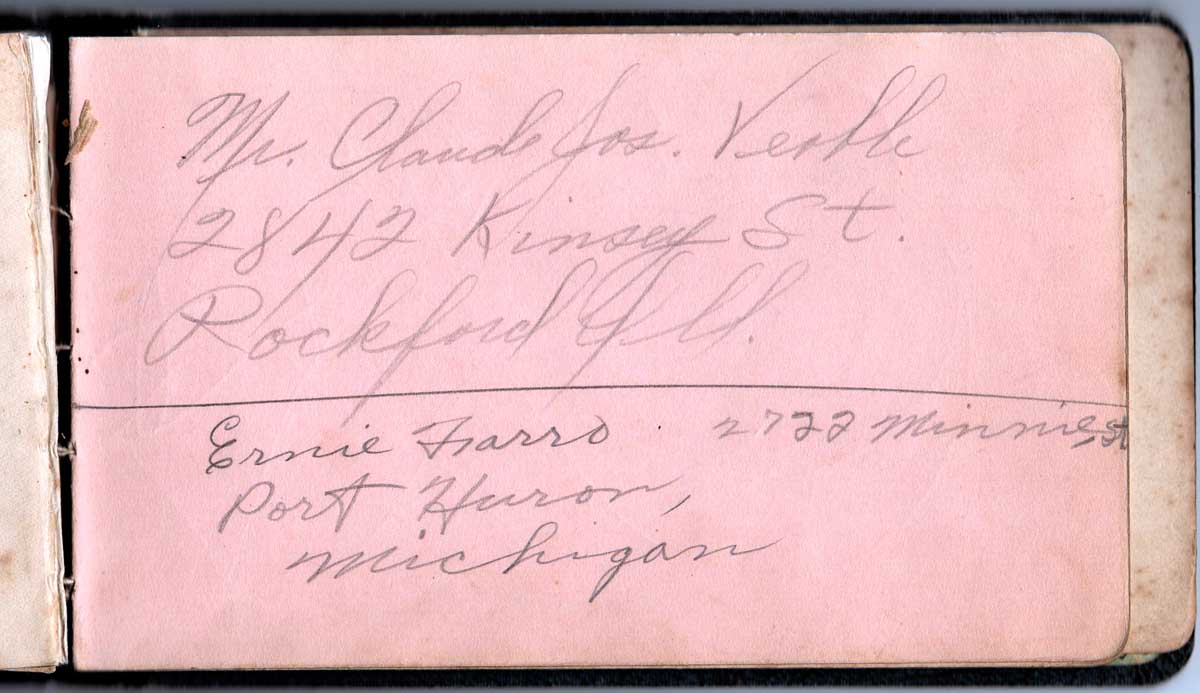 Mr. Claude Jos. Verble
2842 Kinsey St.
Rockford Ill.
Ernie Farro 2722 Minnie, st
Port Huron,
Michigan